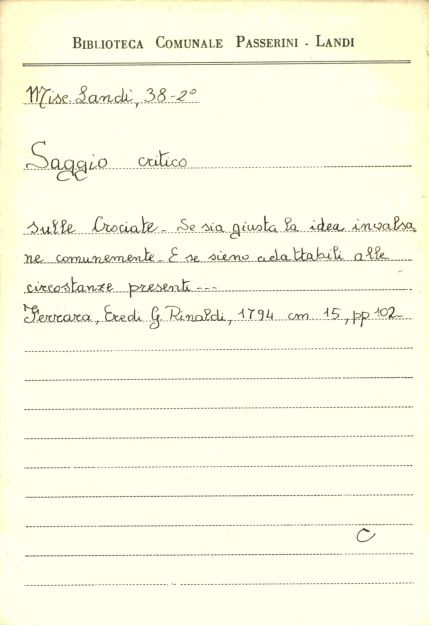 BIBLIOTECA COMUNALE PASSERINI - LANDI
Misc. Landi, 38-2°
Saggio critico
sulle Crociate - Se sia giusta la idea invalsa
ne comunemente - E se sieno adattabili alle
circostanze presenti ---
Ferrara, Eredi G. Rinaldi, 1794 cm 15, pp 102-
C